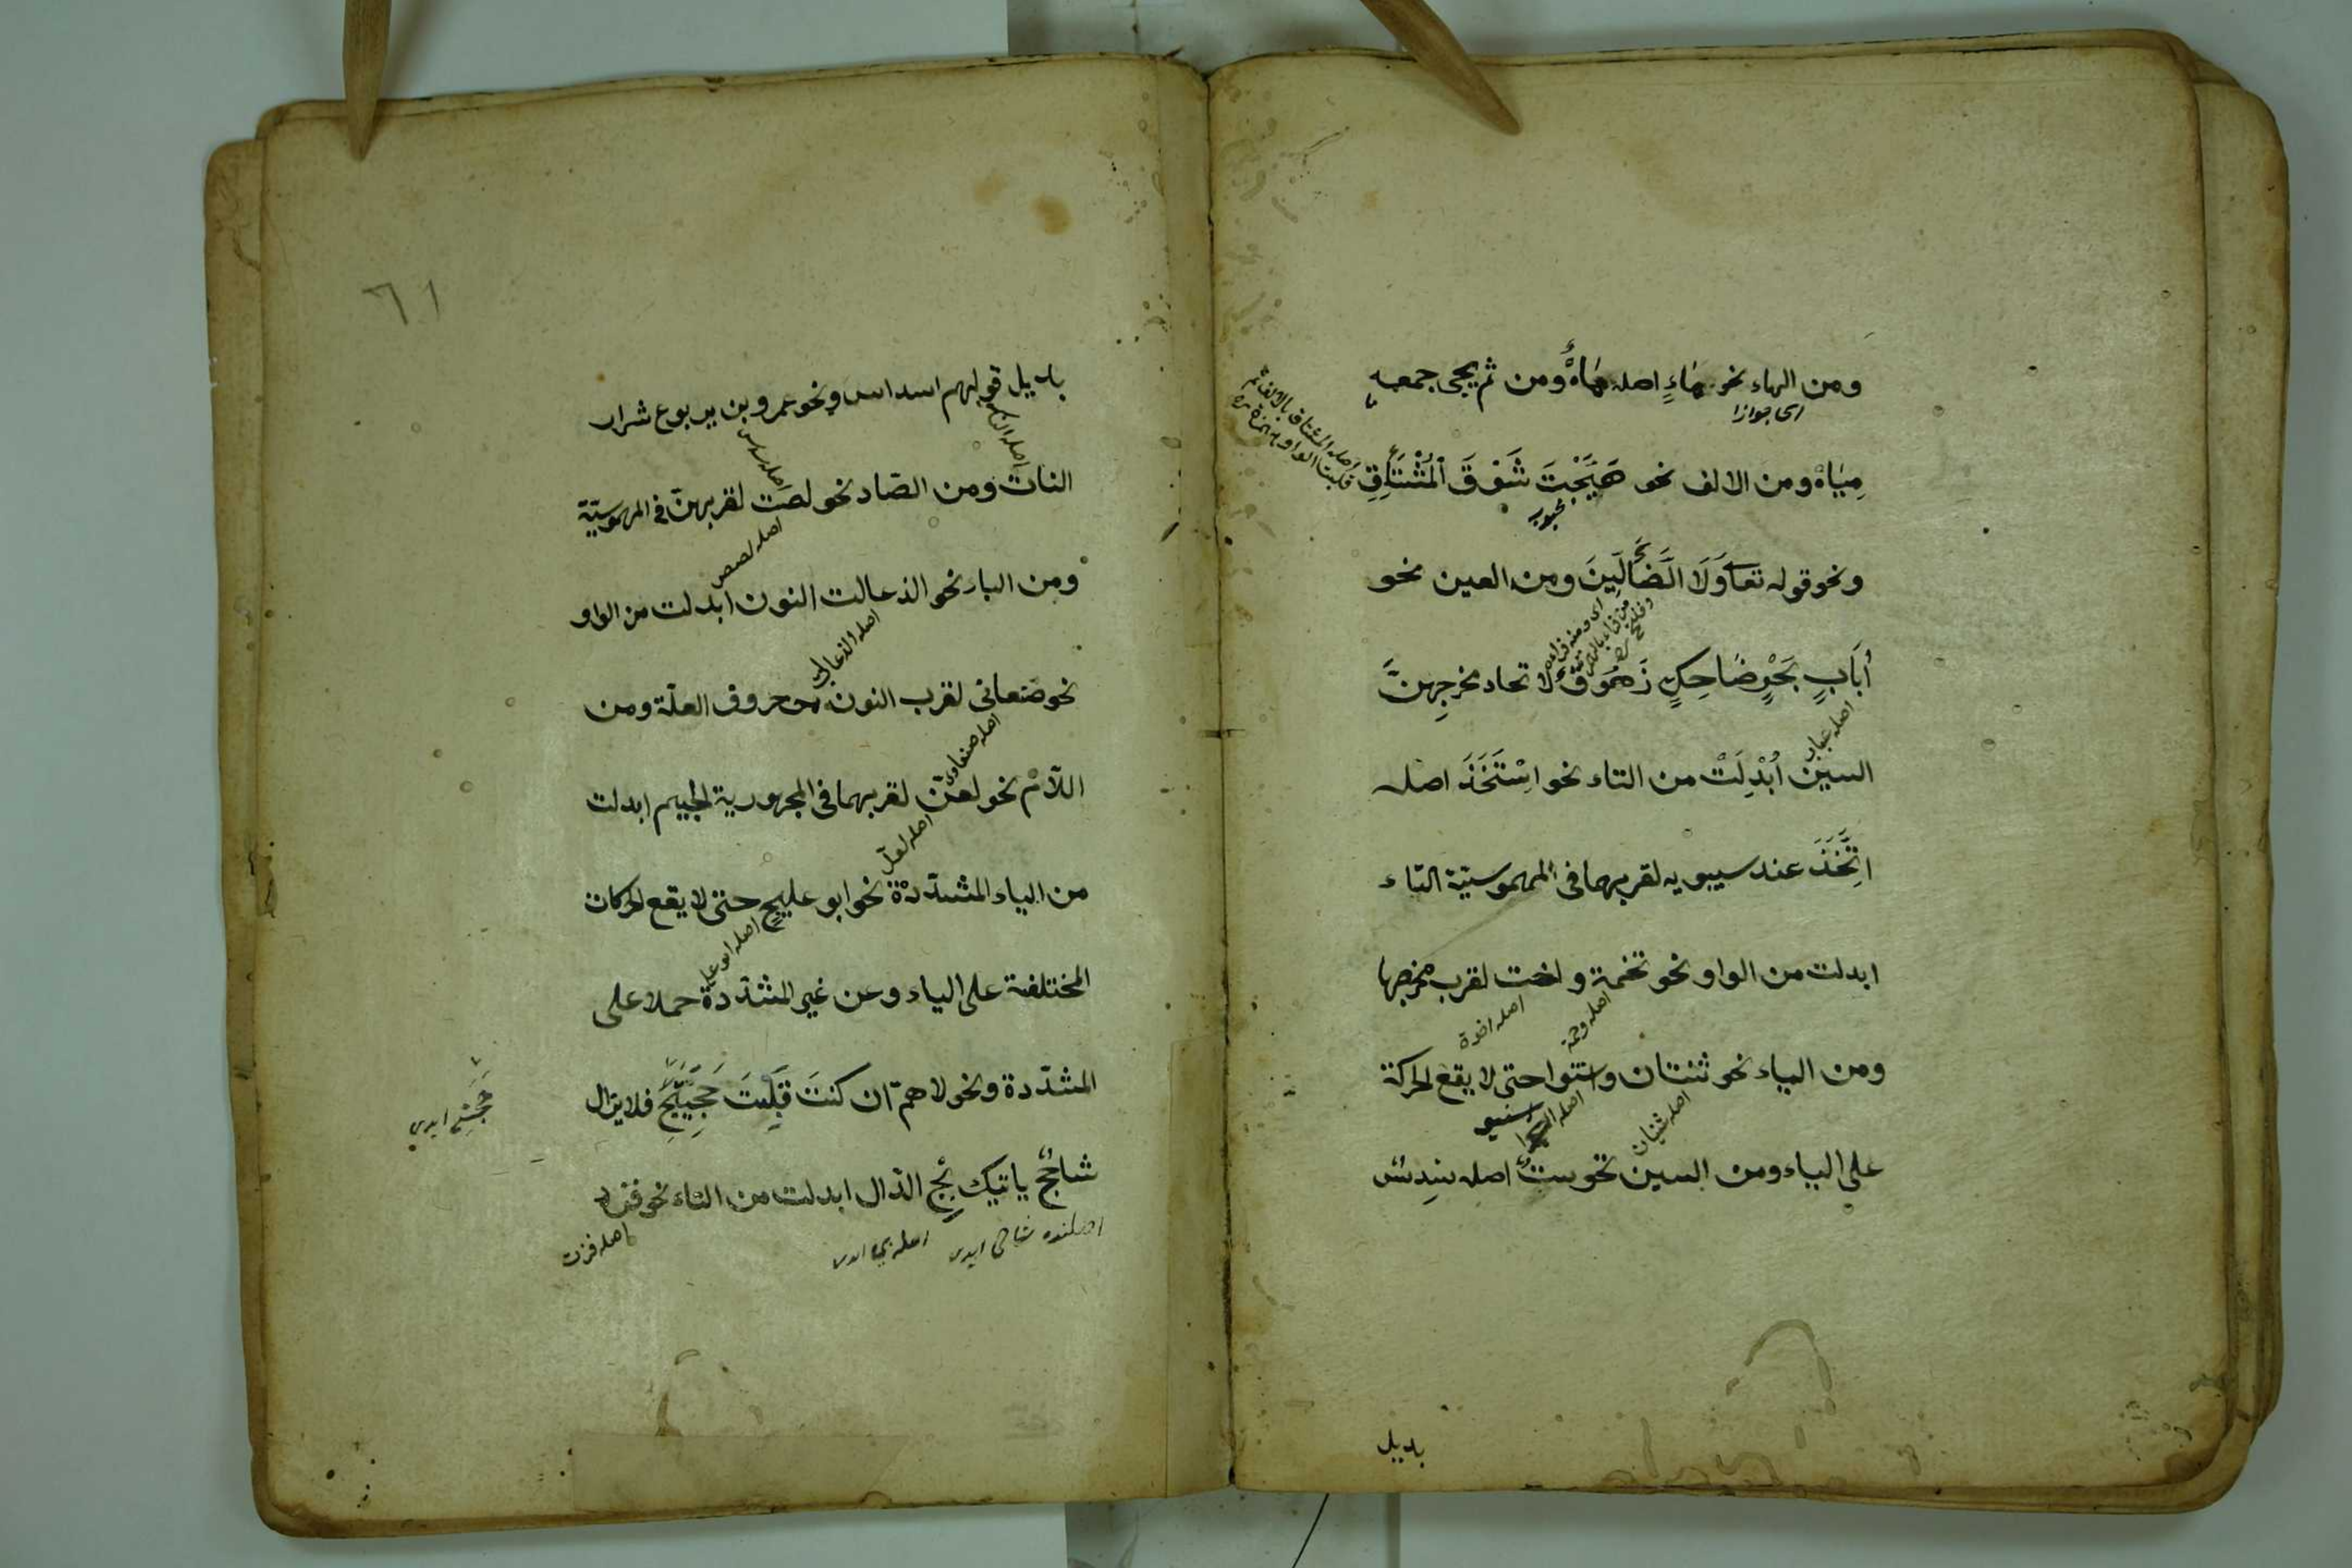 ومن الهاء نحو مَاءٍ اصله مَاهٌ ومن ثم يجى جمعه
اى جوازا
مِيَاهْ ومن الالف نحو هَيَّجْتَ شَوْقَ الْمُشْتَأِقِ
اصله المشتاق بالالف
ونحو قوله تعا وَلَا الضَّألِّينَ ومن العين نحو
أُبَابِ بَحْرٍ ضَاحِكٍ زَهُوقٌ لاتحاد مخرجهنَّ
اصله عباب
السين أُبْدِلَتْ من التاء نحو اسْتَخَذَ اصله
اتَّخَذَ عند سيبويه لقربهما فى المهموسيّة التاء
ابدلت من الواو نحو تخمة واخت لقرب مخرجها
اصله وخمة
اصله اخوة
ومن الياء نحو ثنتان واسنتوا حتى لا يقع الحركة
اصله ثنيان
على الياء ومن السين نحو ستٌّ اصله سِدسٌ
باديل
٦١
باديل قولهم اسداس ونحو عمرو بن يربوع شرار
النات ومن الصّاد نحو لصت لقربهنّ فى المهموسيّة
اصله لصص
ومن الباء نحو الذعالت النون ابدلت من الواو
اصله الذعالب
نحو صنعانى لقرب النون من حروف العلّة ومن
اصله صنعاوى
اللاّم نحو لعنّ لقربهما فى المجهورية الجيم ابدلت
اصله لعلّ
من الياء المشدّدة نحو ابو عليج حتى لا يقع الحركات
اصله ابو على
المختلفة على الياء وعن غير المشدّدة حملا على
المشدّدة ونحو لاهمّ ان كنتَ قَبِلْتَ حَجَّتِجْ فلا يزال
شاحجٌ ياتيك بِجْ الذال ابدلت من التاء نحو فزد
اصله فزت